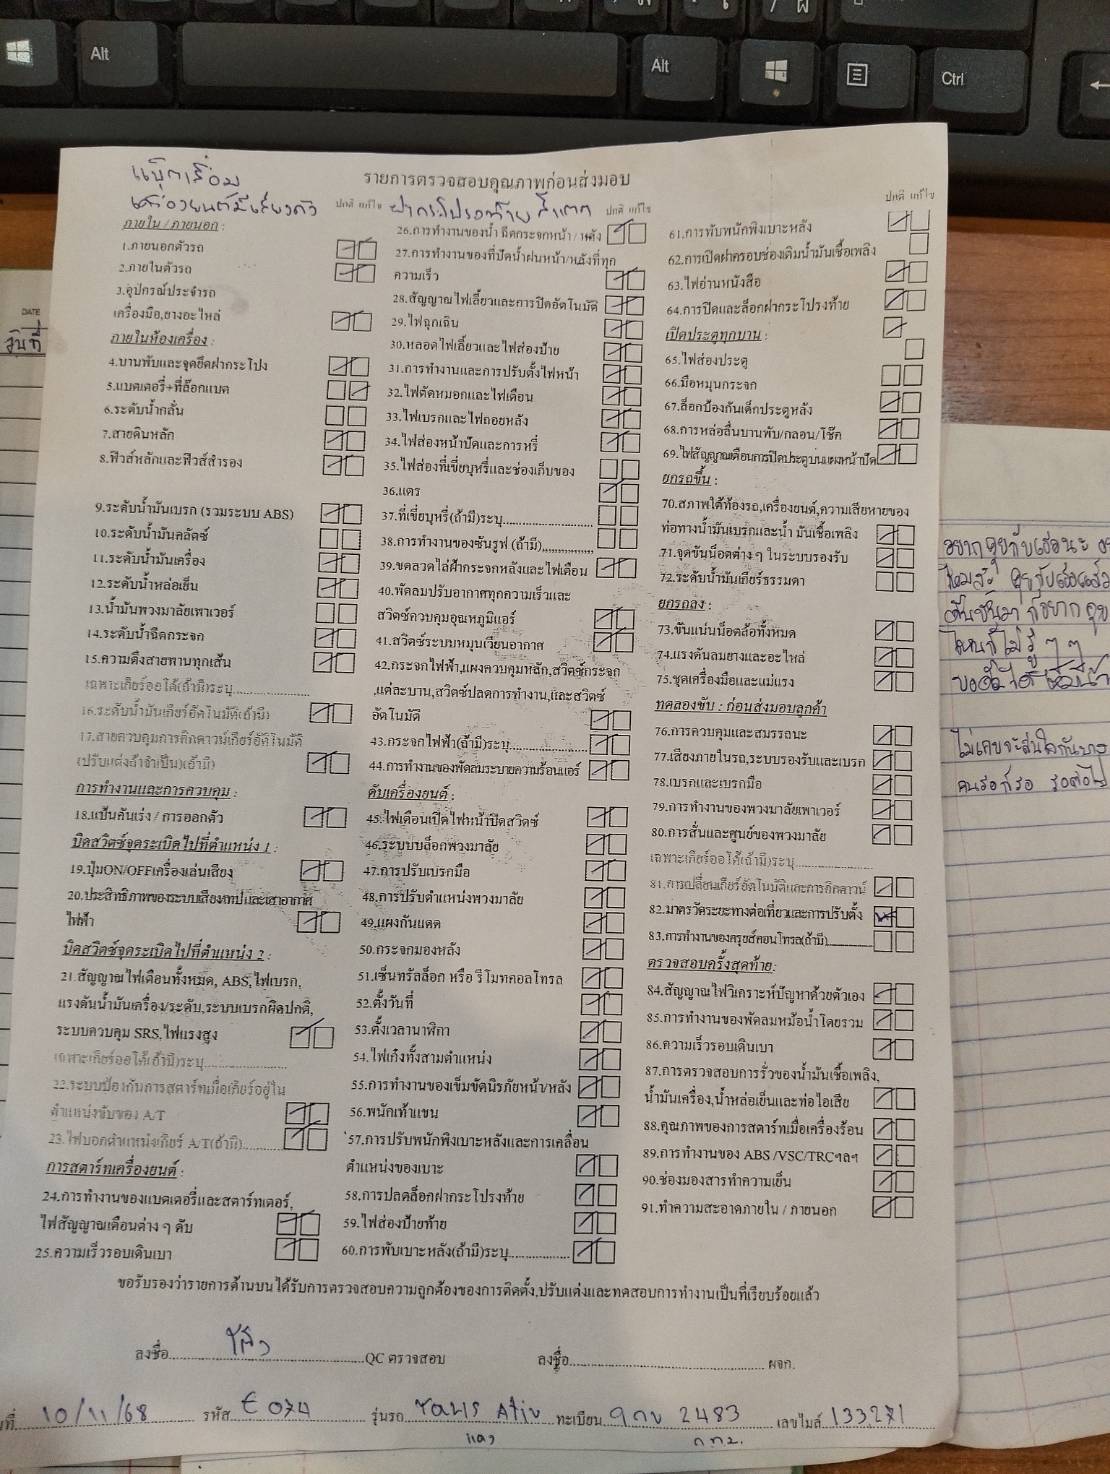 Alt
Alt
Ctrl
แบ็ตเสื่อม
รายการตรวจสอบคุณภาพก่อนส่งมอบ
เครื่องยนต์มีเสียงดัง
ปกติ แก้ไข
ปกติ แก้ไข
ปกติ แก้ไข
ภายใน / ภายนอก :
1.ภายนอกตัวรถ
2.ภายในตัวรถ
3.อุปกรณ์ประจำรถ
เครื่องมือ,ยางอะไหล่
ภายในห้องเครื่อง :
4.บานพับและจุดยึดฝากระโปง
5.แบตเตอรี่+ที่ล็อกแบต
6.ระดับน้ำกลั่น
7.สายดินหลัก
8.ฟิวส์หลักและฟิวส์สำรอง
9.ระดับน้ำมันเบรก (รวมระบบ ABS)
10.ระดับน้ำมันคลัตช์
11.ระดับน้ำมันเครื่อง
12.ระดับน้ำหล่อเย็น
13.น้ำมันพวงมาลัยเพาเวอร์
14.ระดับน้ำฉีดกระจก
15.ความตึงสายพานทุกเส้น
เฉพาะเกียร์ออโต้(ถ้ามี)ระบุ
16.ระดับน้ำมันเกียร์อัตโนมัติ(ถ้ามี)
17.สายควบคุมการคิกดาวน์เกียร์อัตโนมัติ
(ปรับแต่งถ้าจำเป็น)(ถ้ามี)
การทำงานและการควบคุม :
18.แป้นคันเร่ง / การออกตัว
บิดสวิตช์จุดระเบิดไปที่ตำแหน่ง 1 :
19.ปุ่มON/OFFเครื่องเล่นเสียง
20.ประสิทธิภาพของระบบเสียงเทปและเสาอากาศ
ไฟฟ้า
บิดสวิตช์จุดระเบิดไปที่ตำแหน่ง 2 :
21.สัญญาณไฟเตือนทั้งหมด, ABS, ไฟเบรก,
แรงดันน้ำมันเครื่อง/ระดับ,ระบบเบรกผิดปกติ,
ระบบควบคุม SRS,ไฟแรงสูง
เฉพาะเกียร์ออโต้(ถ้ามี)ระบุ
22.ระบบป้องกันการสตาร์ทเมื่อเกียร์อยู่ใน
ตำแหน่งขับของ A/T
23.ไฟบอกตำแหน่งเกียร์ A/T(ถ้ามี)
การสตาร์ทเครื่องยนต์ :
24.การทำงานของแบตเตอรี่และสตาร์ทเตอร์,
ไฟสัญญาณเตือนต่าง ๆ ดับ
25.ความเร็วรอบเดินเบา
26.การทำงานของน้ำ ฉีดกระจกหน้า / หลัง
27.การทำงานของที่ปัดน้ำฝนหน้า/หลังที่ทุก
ความเร็ว
28.สัญญาณไฟเลี้ยวและการปิดอัตโนมัติ
29.ไฟฉุกเฉิน
30.หลอดไฟเลี้ยวและไฟส่องป้าย
31.การทำงานและการปรับตั้งไฟหน้า
32.ไฟตัดหมอกและไฟเตือน
33.ไฟเบรกและไฟถอยหลัง
34.ไฟส่องหน้าปัดและการหรี่
35.ไฟส่องที่เขี่ยบุหรี่และช่องเก็บของ
36.แตร
37.ที่เขี่ยบุหรี่(ถ้ามี)ระบุ
38.การทำงานของซันรูฟ (ถ้ามี)
39.ขดลวดไล่ฝ้ากระจกหลังและไฟเตือน
40.พัดลมปรับอากาศทุกความเร็วและ
สวิตช์ควบคุมอุณหภูมิแอร์
41.สวิตช์ระบบหมุนเวียนอากาศ
42.กระจกไฟฟ้า,แผงควบคุมหลัก,สวิตช์กระจก
,แต่ละบาน,สวิตช์ปลดการทำงาน,และสวิตช์
อัตโนมัติ
43.กระจกไฟฟ้า(ถ้ามี)ระบุ
44.การทำงานของพัดลมระบายความร้อนแอร์
ดับเครื่องยนต์ :
45.ไฟเตือนเปิดไฟหน้าปิดสวิตช์
46.ระบบบล็อกพวงมาลัย
47.การปรับเบรกมือ
48.การปรับตำแหน่งพวงมาลัย
49.แผงกันแดด
50.กระจกมองหลัง
51.เซ็นทรัลล็อก หรือ รีโมทคอลโทรล
52.ตั้งวันที่
53.ตั้งเวลานาฬิกา
54.ไฟเก๋งทั้งสามตำแหน่ง
55.การทำงานของเข็มขัดนิรภัยหน้า/หลัง
56.พนักเท้าแขน
57.การปรับพนักพิงเบาะหลังและการเคลื่อน
ตำแหน่งของเบาะ
58.การปลดล็อกฝากระโปรงท้าย
59.ไฟส่องป้ายท้าย
60.การพับเบาะหลัง(ถ้ามี)ระบุ
61.การพับพนักพิงเบาะหลัง
62.การเปิดฝาครอบช่องเติมน้ำมันเชื้อเพลิง
63.ไฟอ่านหนังสือ
64.การปิดและล็อกฝากระโปรงท้าย
เปิดประตูทุกบาน :
65.ไฟส่องประตู
66.มือหมุนกระจก
67.ล็อกป้องกันเด็กประตูหลัง
68.การหล่อลื่นบานพับ/กลอน/โช๊ก
69.ไฟสัญญาณเตือนการปิดประตูบนแผงหน้าปัด
ยกรถขึ้น :
70.สภาพใต้ท้องรถ,เครื่องยนต์,ความเสียหายของ
ท่อทางน้ำมันเบรกและน้ำ มันเชื้อเพลิง
71.จุดขันน็อตต่าง ๆ ในระบบรองรับ
72.ระดับน้ำมันเกียร์ธรรมดา
ยกรถลง :
73.ขันแน่นน็อตล้อทั้งหมด
74.แรงดันลมยางและอะไหล่
75.ชุดเครื่องมือและแม่แรง
ทดลองขับ : ก่อนส่งมอบลูกค้า
76.การควบคุมและสมรรถนะ
77.เสียงภายในรถ,ระบบรองรับและเบรก
78.เบรกและเบรกมือ
79.การทำงานของพวงมาลัยเพาเวอร์
80.การสั่นและศูนย์ของพวงมาลัย
เฉพาะเกียร์ออโต้(ถ้ามี)ระบุ
81.การเปลี่ยนเกียร์อัตโนมัติและการคิกดาวน์
82.มาตรวัดระยะทางต่อเที่ยวและการปรับตั้ง
83.การทำงานของครูยส์คอนโทรล(ถ้ามี)
ตรวจสอบครั้งสุดท้าย:
84.สัญญาณไฟวิเคราะห์ปัญหาด้วยตัวเอง
85.การทำงานของพัดลมหม้อน้ำโดยรวม
86.ความเร็วรอบเดินเบา
87.การตรวจสอบการรั่วของน้ำมันเชื้อเพลิง,
น้ำมันเครื่อง,น้ำหล่อเย็นและท่อไอเสีย
88.คุณภาพของการสตาร์ทเมื่อเครื่องร้อน
89.การทำงานของ ABS /VSC/TRCฯลฯ
90.ช่องมองสารทำความเย็น
91.ทำความสะอาดภายใน / ภายนอก
ขอรับรองว่ารายการด้านบนได้รับการตรวจสอบความถูกต้องของการติดตั้ง,ปรับแต่งและทดสอบการทำงานเป็นที่เรียบร้อยแล้ว
ลงชื่อ QC ตรวจสอบ
ลงชื่อ ผจก.
10/11/68 รหัส E 074 รุ่นรถ Yaris Ativ ทะเบียน 9กข 2483 เลขไมล์ 133271
แดง
ก.ท.ม.
DATE
วันที่